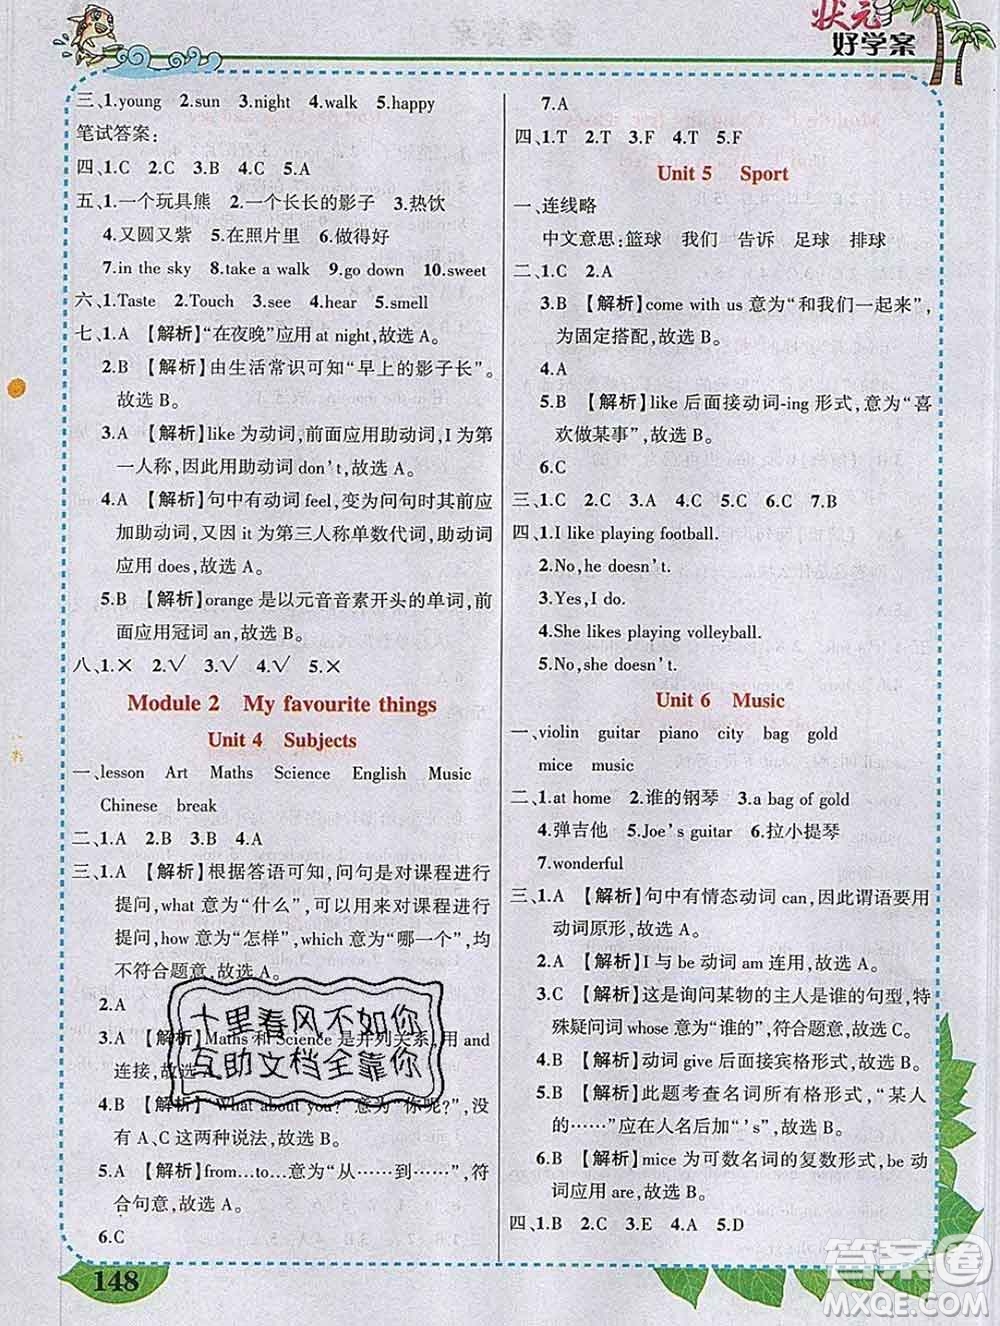 状元
好学案
三、1.young 2.sun 3.night 4.walk 5.happy
笔试答案:
四、1.C 2.A 3.B 4.C 5.A
五、1.一个玩具熊 2.一个长长的影子 3.热饮
4.又圆又紫 5.在照片里 6.做得好
7.in the sky 8.take a walk 9.go down 10.sweet
六、1.Taste 2.Touch 3.see 4.hear 5.smell
七、1.A 【解析】“在夜晚”应用 at night,故选 A。
2.B 【解析】由生活常识可知“早上的影子长”。
故选 B。
3.A 【解析】like 为动词,前面应用助动词,I 为第
一人称,因此用助动词 don't,故选 A。
4.A 【解析】句中有动词 feel,变为问句时其前应
加助动词,又因 it 为第三人称单数代词,助动词
应用 does,故选 A。
5.B 【解析】orange 是以元音音素开头的单词,前
面应用冠词 an,故选 B。
八、1.× 2.√ 3.√ 4.√ 5.×
Module 2 My favourite things
Unit 4 Subjects
一、lesson Art Maths Science English Music
Chinese break
二、1.A 2.B 3.B 4.A
三、1.A 【解析】根据答语可知,问句是对课程进行
提问,what 意为“什么”,可以用来对课程进行
提问,how 意为“怎样”,which 意为“哪一个”,均
不符合题意,故选 A。
2.A
3.A 【解析】Maths 和 Science 是并列关系,用 and
连接,故选 A。
4.B 【解析】What about you? 意为“你呢?”,没
有 A、C 这两种说法,故选 B。
5.A 【解析】from…to…意为“从……到……”,符
合句意,故选 A。
6.C
148
7.A
四、1.T 2.T 3.F 4.T 5.F
Unit 5 Sport
一、连线略
中文意思:篮球 我们 告诉 足球 排球
二、1.C 2.A
3.B 【解析】come with us 意为“和我们一起来”,
为固定搭配,故选 B。
4.A
5.B 【解析】like 后面接动词-ing 形式,意为“喜
欢做某事”,故选 B。
6.C
三、1.C 2.C 3.A 4.C 5.A 6.C 7.B
四、1.I like playing football.
2.No,he doesn't.
3.Yes,I do.
4.She likes playing volleyball.
5.No,she doesn't.
Unit 6 Music
一、violin guitar piano city bag gold
mice music
二、1.at home 2.谁的钢琴 3.a bag of gold
4.弹吉他 5.Joe's guitar 6.拉小提琴
7.wonderful
三、1.A 【解析】句中有情态动词 can,因此谓语要用
动词原形,故选 A。
2.A 【解析】I 与 be 动词 am 连用,故选 A。
3.C 【解析】这是询问某物的主人是谁的句型,特
殊疑问词 whose 意为“谁的”,符合题意,故选 C。
4.B 【解析】动词 give 后面接宾格形式,故选 B。
5.B 【解析】此题考查名词所有格形式,“某人
的……”应在人名后加“'s”,故选 B。
6.B 【解析】mice 为可数名词的复数形式,be 动
词应用 are,故选 B。
四、1.B 2.C 3.E 4.A 5.D
十里春风不如你
互助文档全靠你
答案圈
MXQE.COM